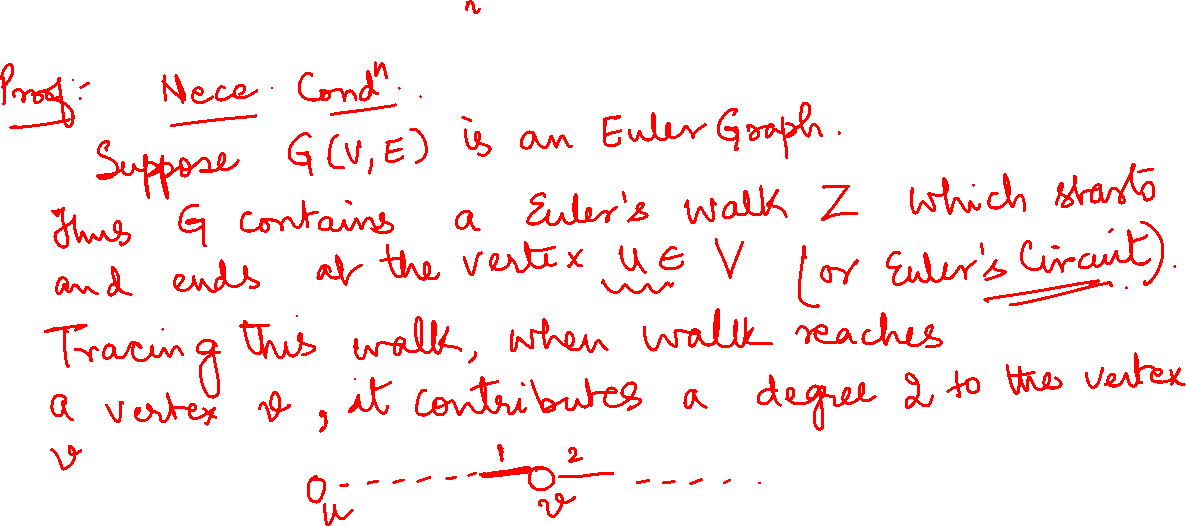 n
Proof:- Nece. Condⁿ.
Suppose G(V,E) is an Euler Graph.
Thus G contains a Euler's walk Z which starts
and ends at the vertex u ∈ V (or Euler's Circuit).
Tracing this walk, when walk reaches
a vertex v, it contributes a degree 2 to the vertex
v
1 2
u v